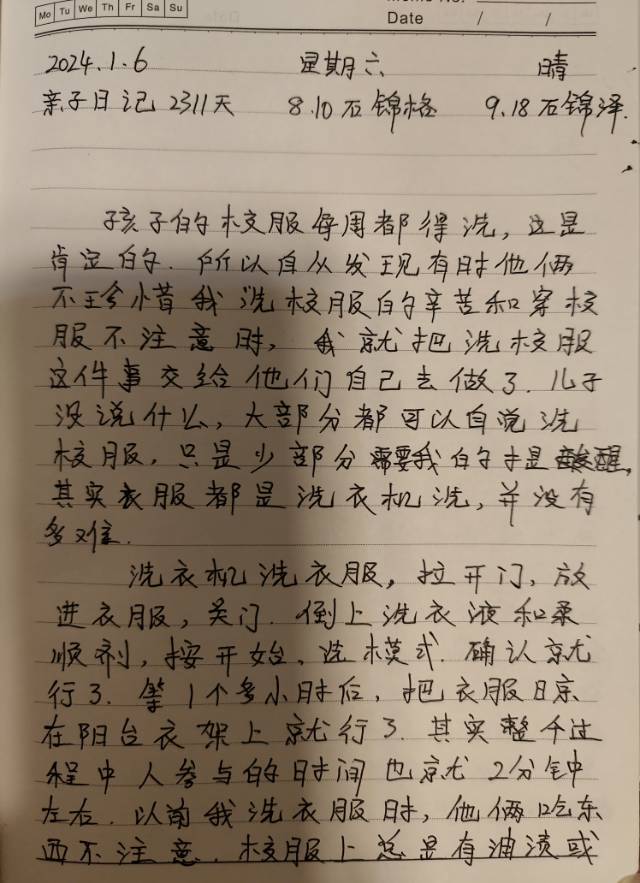 Mo Tu We Th Fr Sa Su
Memo No.
Date / /
2024.1.6 星期六 晴
亲子日记 2311天 8.10石锦格 9.18石锦泽.
孩子的校服每周都得洗，这是
肯定的.所以自从发现有时他俩
不珍惜我洗校服的辛苦和穿校
服不注意时，我就把洗校服
这件事交给他们自己去做了.儿子
没说什么，大部分都可以自觉洗
校服，只是少部分需要我的提醒，
其实衣服都是洗衣机洗，并没有
多难.
洗衣机洗衣服，拉开门，放
进衣服，关门.倒上洗衣液和柔
顺剂，按开始、选模式.确认就
行了.等1个多小时后，把衣服晾
在阳台衣架上就行了.其实整个过
程中人参与的时间也就2分钟
左右.以前我洗衣服时，他俩吃东
西不注意.校服上总是有油渍或